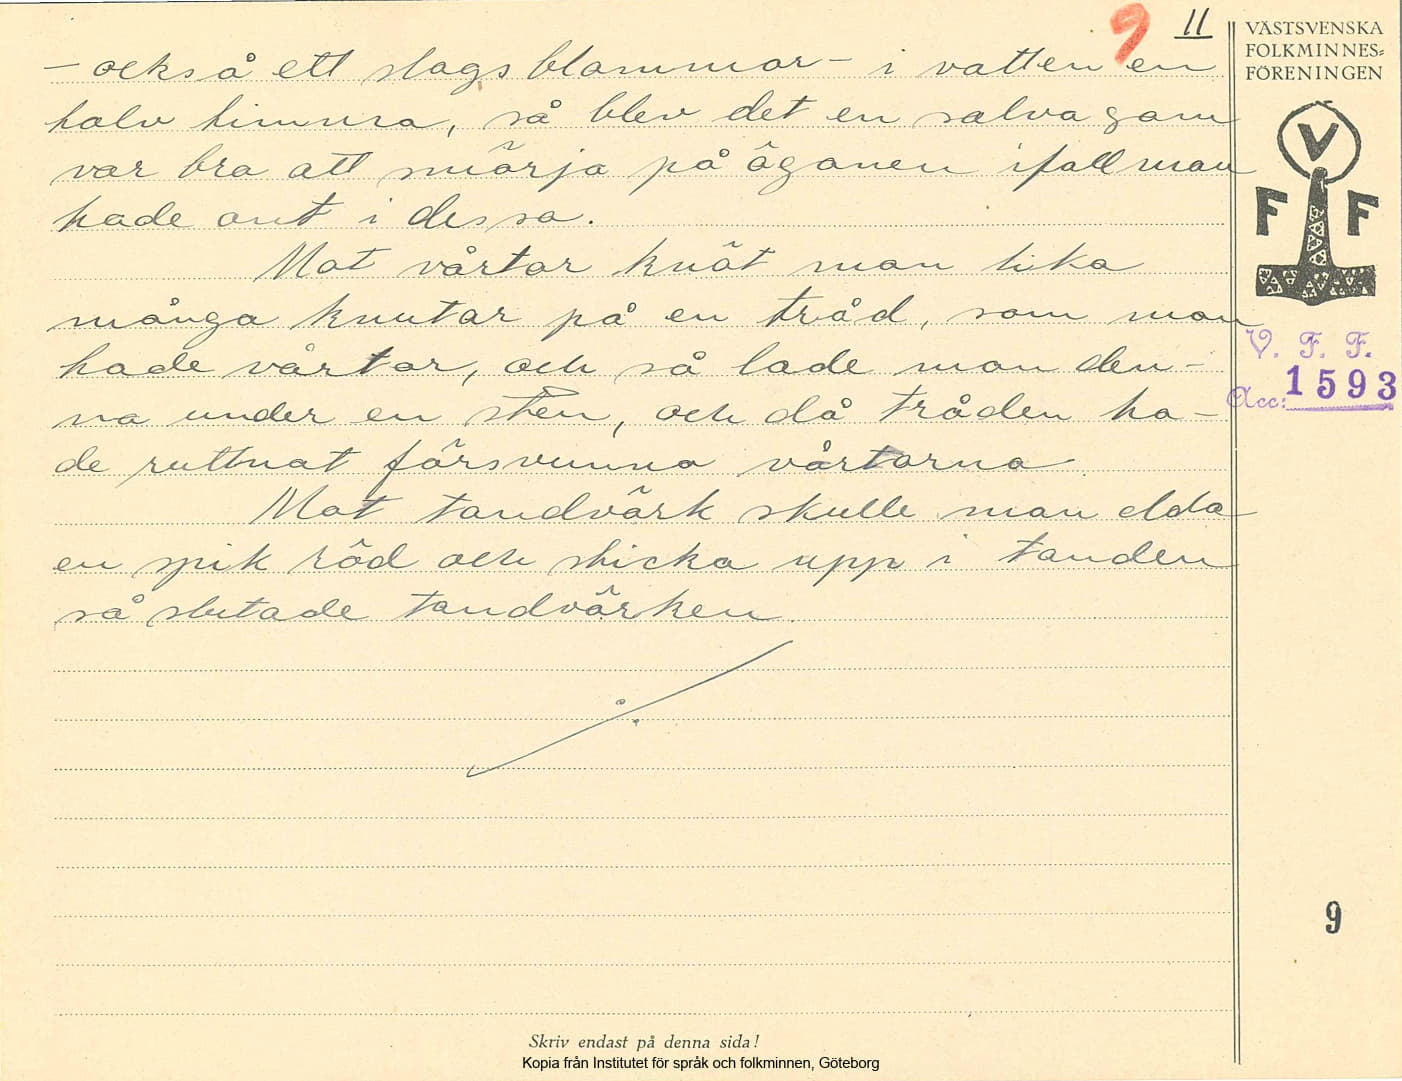 9 11
VÄSTSVENSKA
FOLKMINNES-
FÖRENINGEN
V
F F
V. F. F.
Acc: 1593
- också ett slags blommor - i vatten en
halv timma, så blev det en salva som
var bra att smörja på ögonen ifall man
hade ont i dessa.
Mot vårtor knöt man lika
många knutar på en tråd, som man
hade vårtor, och så lade man den-
na under en sten, och då tråden ha-
de ruttnat försvunno vårtorna
Mot tandvärk skulle man elda
en spik röd och sticka upp i tanden
så slutade tandvärken.
9
Skriv endast på denna sida!
Kopia från Institutet för språk och folkminnen, Göteborg